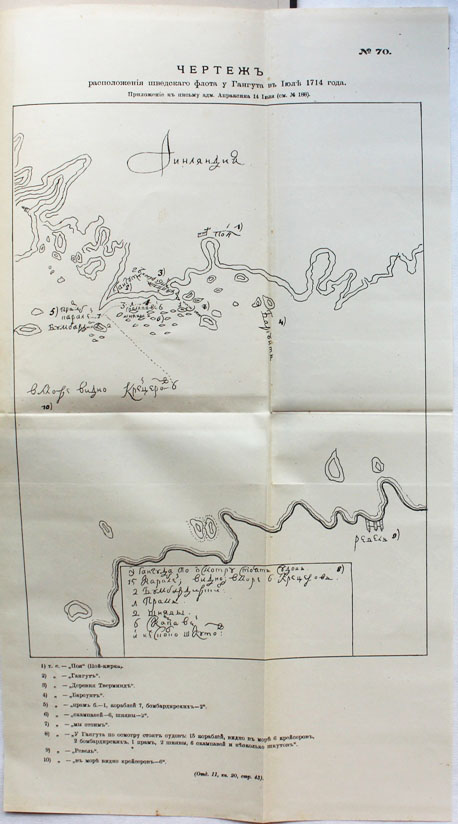 № 70.
ЧЕРТЕЖЪ
расположенія шведскаго флота у Гангута въ Іюлѣ 1714 года.
Приложеніе къ письму адм. Апраксина 14 Іюля (см. № 166).
Финляндия
Пой 1)
3)
5)
4)
Бомбард
в море видно Крейсеров 6
10)
ревель 9)
У Гангута по осмотру стоять судов 8)
15 Караблей, видно в море 6 Крейсеров.
2 Бомбардирских
1 Прам.
2 Шнявы.
6
1) т. е. — „Пой" (Пой-кирка„
2) „ — „Гангутъ".
3) „ — „Деревня Тверминде".
4) „ — „Барзунтъ".
5) „ — „прамъ б.—1, кораблей 7, бомбардирскихъ—2".
6) „ — „скампавей—6, шнявы—2".
7) „ — „мы стоимъ".
8) „ — „У Гангута по осмотру стоятъ судовъ 15 кораблей, видно въ морѣ 6 крейсеровъ,
2 бомбардирскихъ, 1 прамъ, 2 шнявы, 6 скампавей и нѣсколько шкутовъ".
9) „ — „Ревель".
10) „ — „въ морѣ видно крейсеровъ—6".
(Отд. II, кн. 20, стр. 42).